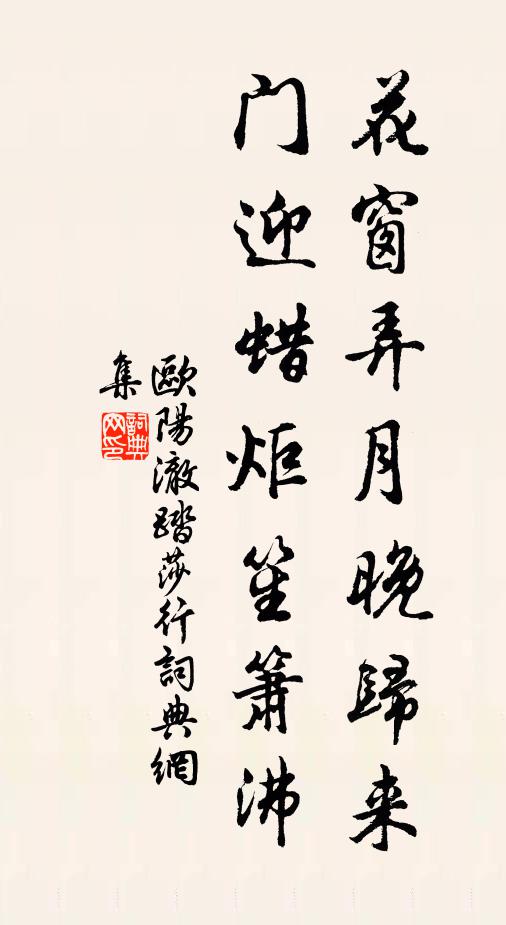 花窗弄月晚歸来
门迎蜡炬笙箫沸
歐陽澈踏莎行詞典網
集
詞典网印